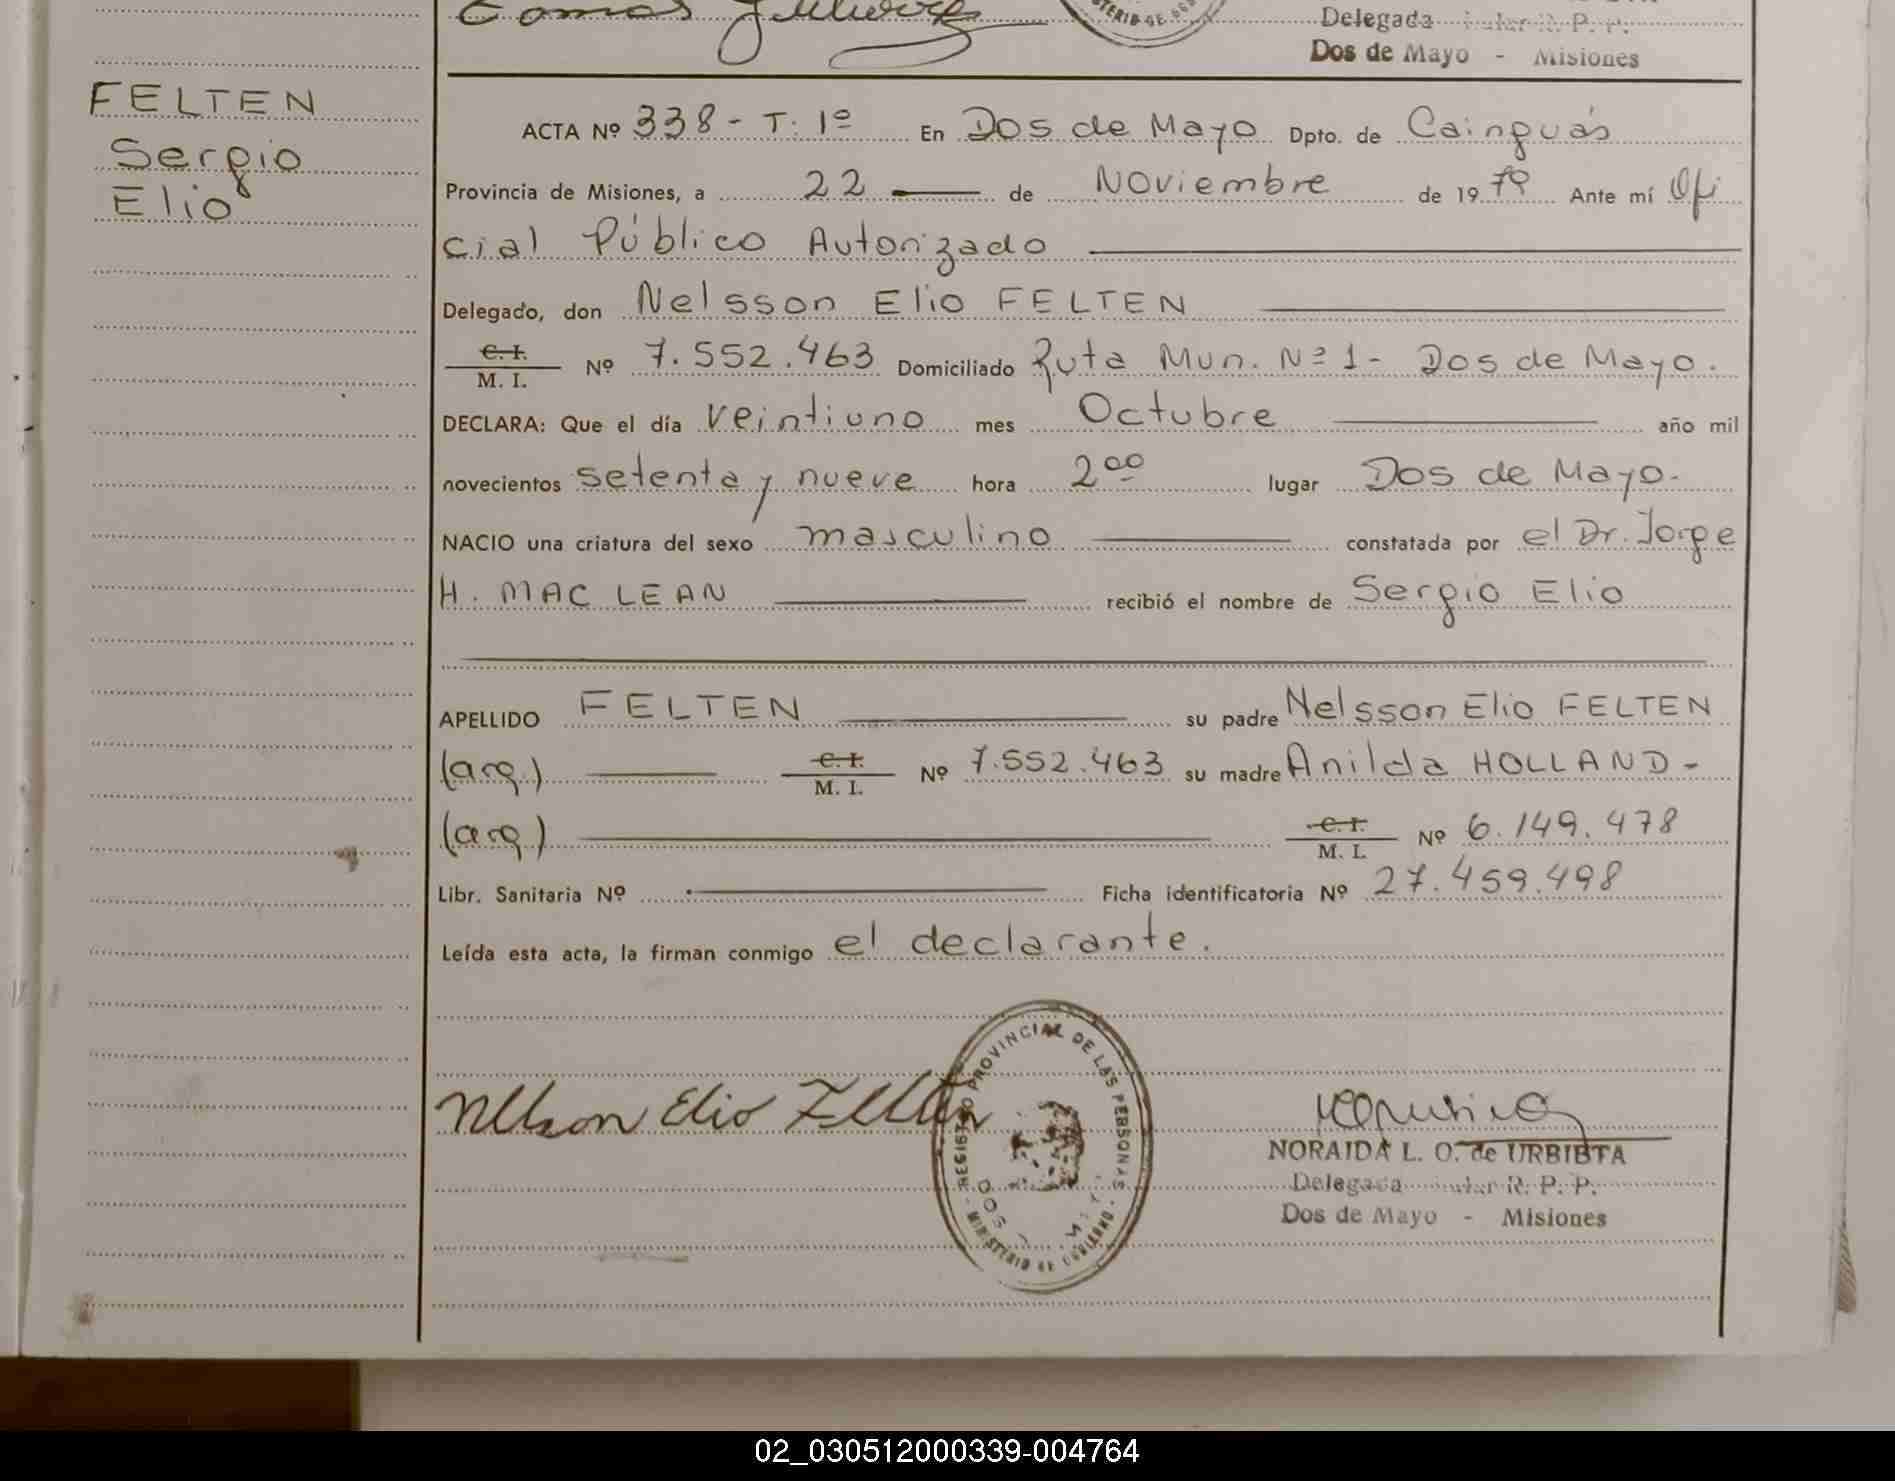 Delegada R. P. P.
Dos de Mayo - Misiones
FELTEN
Sergio
Elio
ACTA Nº 338 - T. 1º En Dos de Mayo Dpto. de Cainguás
Provincia de Misiones, a 22 de Noviembre de 1979 Ante mí Ofi
cial Público Autorizado
Delegado, don Nelsson Elio FELTEN
C. I.
M. I. Nº 7.552.463 Domiciliado Ruta Mun. Nº 1 - Dos de Mayo.
DECLARA: Que el día veintiuno mes Octubre año mil
novecientos setenta y nueve hora 2⁰⁰ lugar Dos de Mayo.
NACIO una criatura del sexo masculino constatada por el Dr. Jorge
H. MAC LEAN recibió el nombre de Sergio Elio
APELLIDO FELTEN su padre Nelsson Elio FELTEN
(arg.) C. I.
M. I. Nº 7.552.463 su madre Anilda HOLLAND -
(arg) C. I.
M. I. Nº 6.149.478
Libr. Sanitaria Nº Ficha identificatoria Nº 27.459.498
Leída esta acta, la firman conmigo el declarante.
Nelson Elio Felten
REGISTRO PROVINCIAL DE LAS PERSONAS
DOS
MINISTERIO DE GOBIERNO
NORAIDA L. O. de URBIETA
Delegada R. P. P.
Dos de Mayo - Misiones
02_030512000339-004764